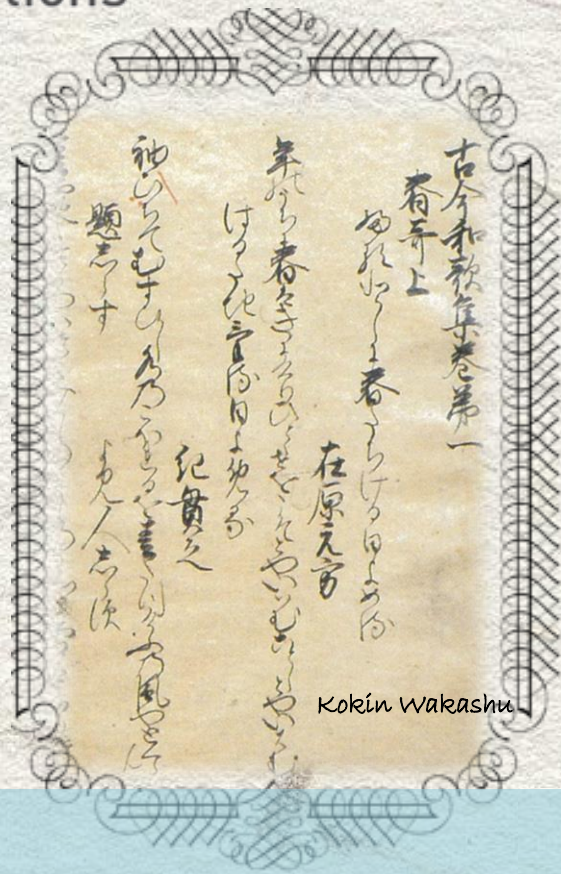 tions
古今和歌集巻第一
春哥上
ふるとしに春たちける日よめる
在原元方
年のうちに春はきにけりひとゝせをこそとやいはむことしとやいはむ
はるたちける日よめる
紀貫之
袖ひちてむすひし水のこほれるを春立けふの風やとく
題しらす
よみ人しらす
Kokin Wakashu